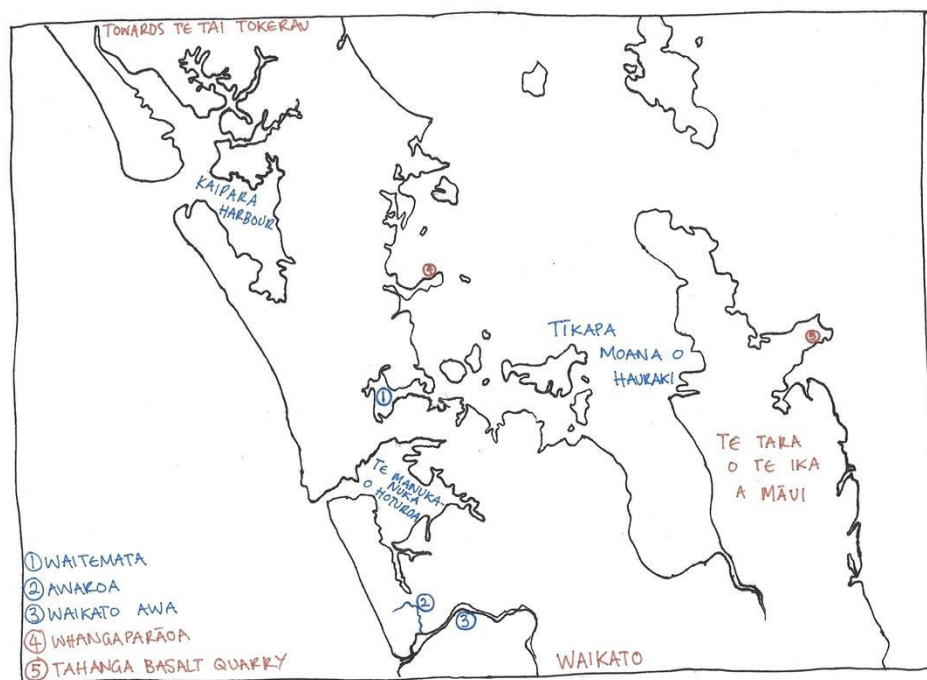 TOWARDS TE TAI TOKERAU
KAIPARA
HARBOUR
④
TĪKAPA
MOANA O
HAURAKI
⑤
①
TE MANUKA-
NUKA
O HOTUROA
TE TARA
O TE IKA
A MĀUI
②
③
WAIKATO
① WAITEMATA
② AWAROA
③ WAIKATO AWA
④ WHANGAPARĀOA
⑤ TAHANGA BASALT QUARRY